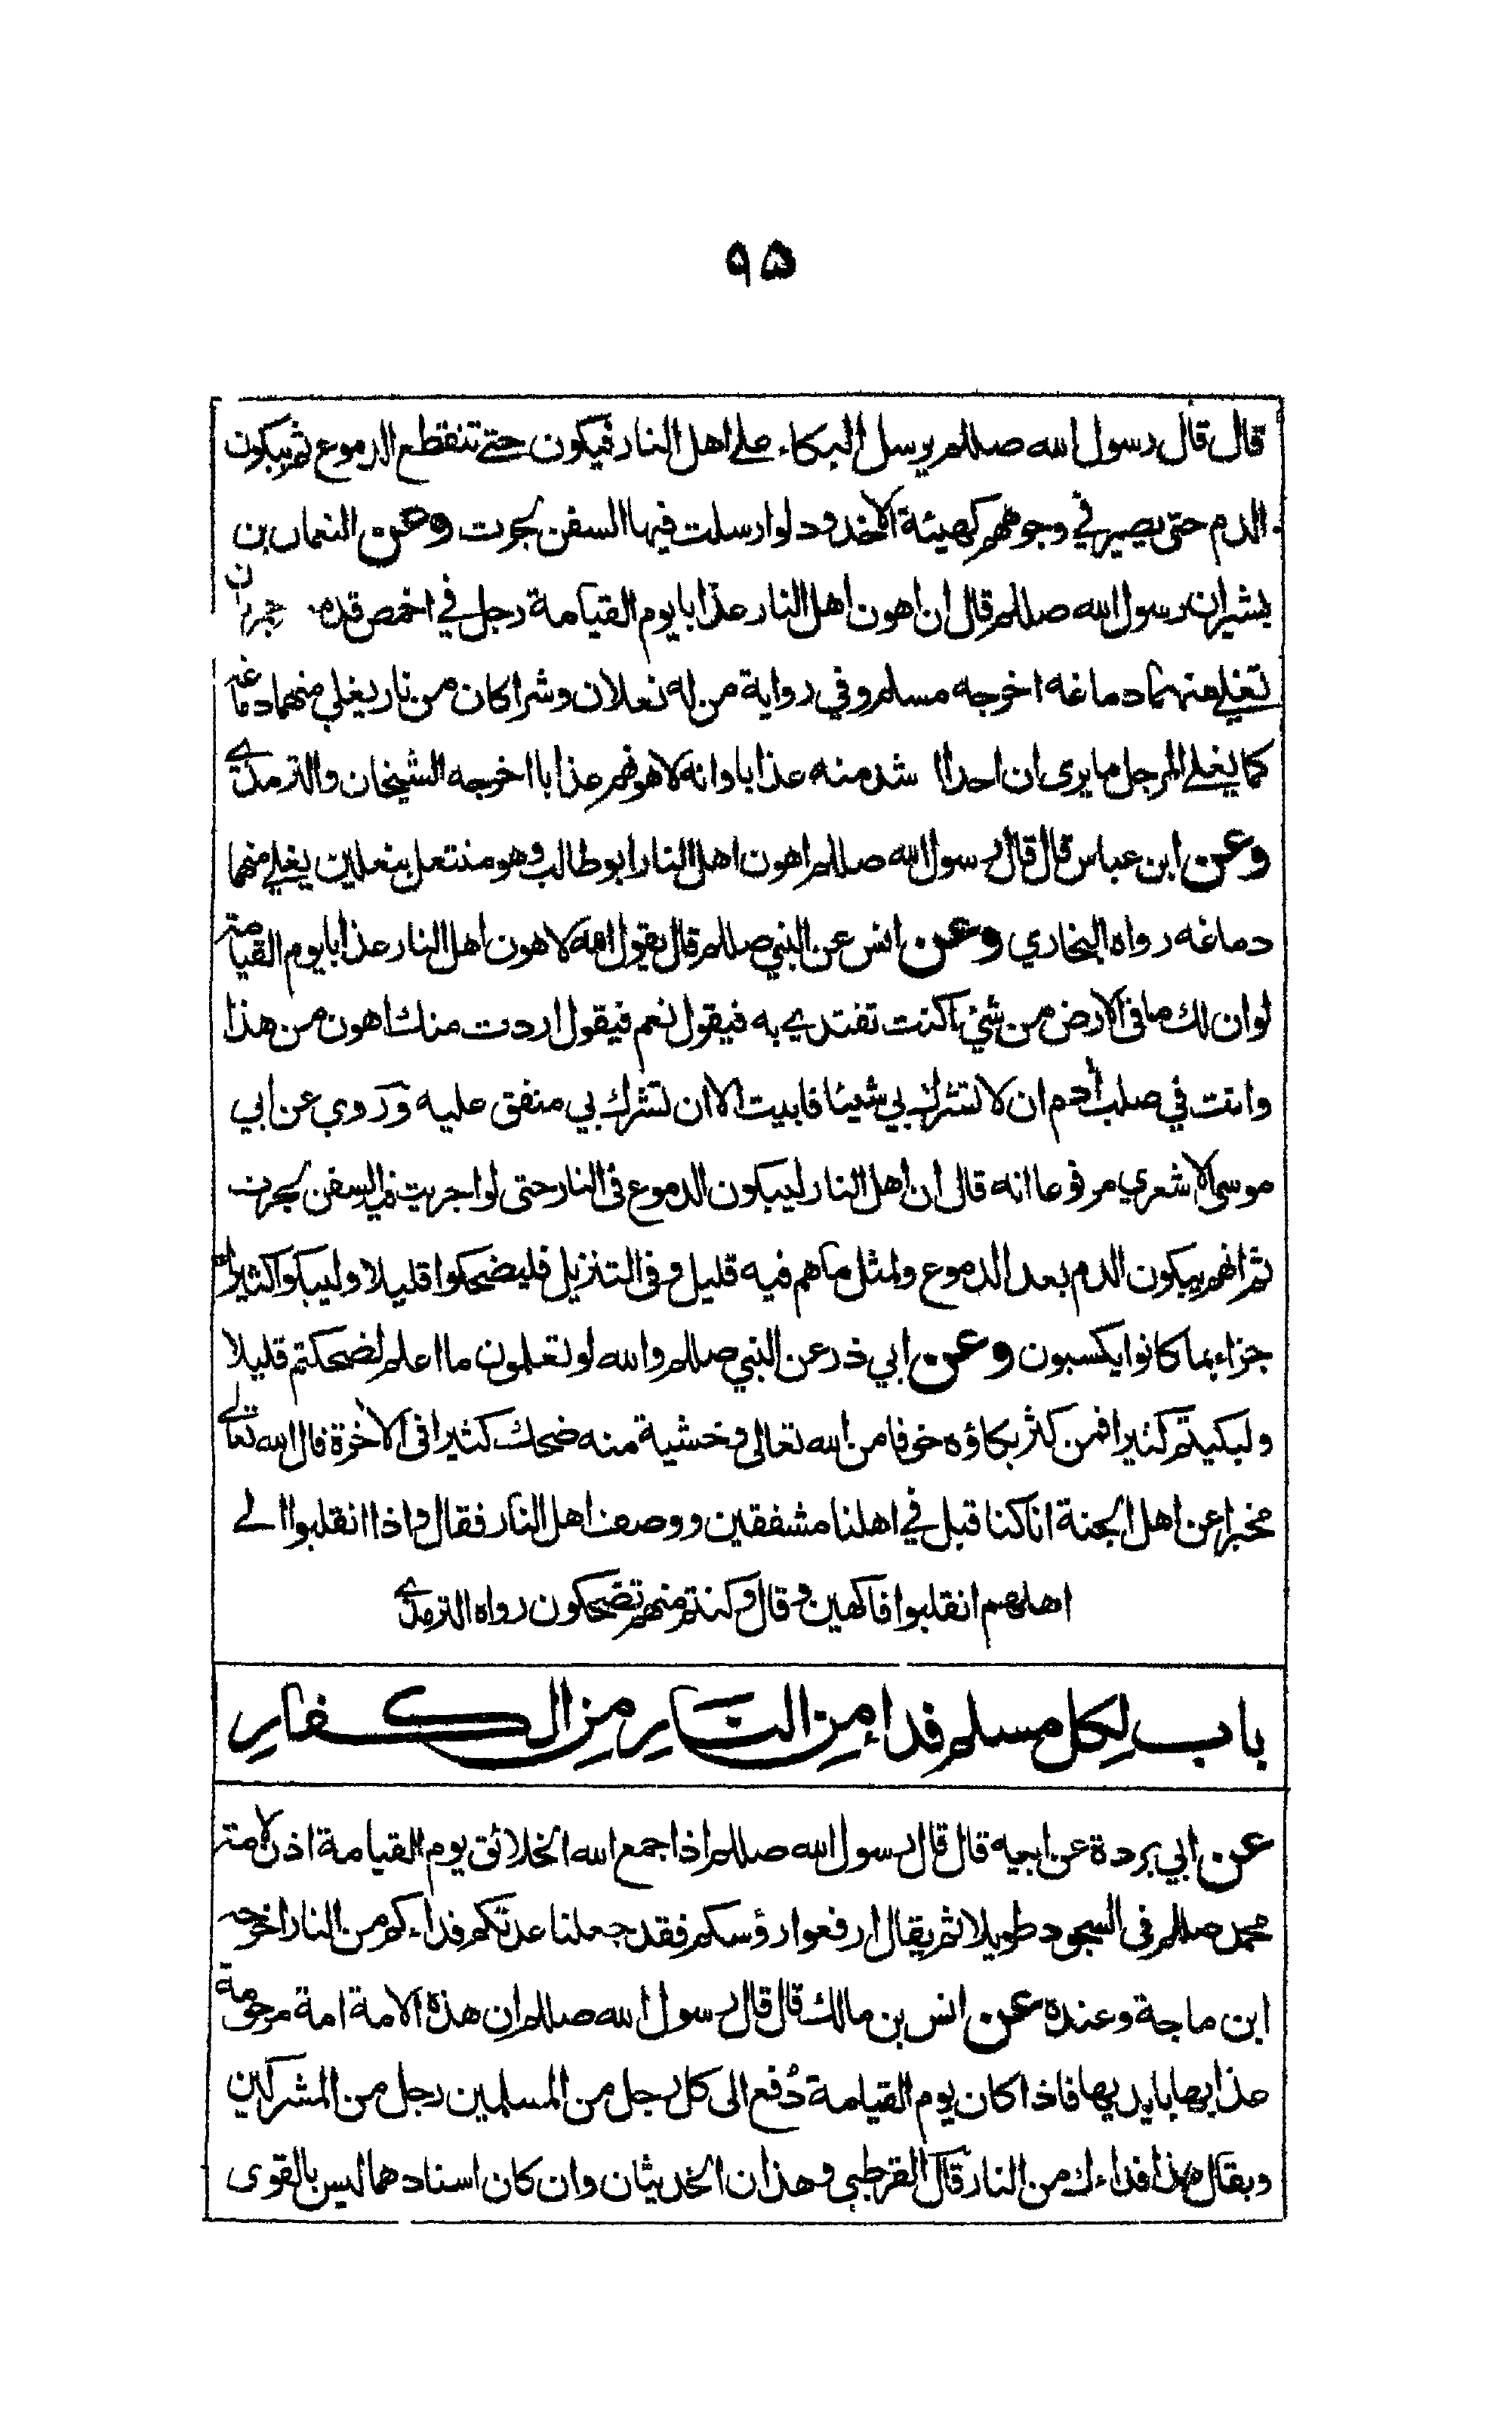 ٩۵
قال قال رسول الله صللم يرسل البكاء على اهل النار فيبكون حتے تنقطع الدموع ثم يبكون
الدم حتى يصير في وجوههم كهيئة الاخدود لو ارسلت فيها السفن لجرت وعن النعمان بن
بشير ان رسول الله صللم قال ان اهون اهل النار عذابا يوم القيامة رجل في اخمص قدمه جمرتان
تغلي منهما دماغه اخرجه مسلم وفي رواية من له نعلان وشراكان من نار يغلي منهما دماغه
كما يغلے المرجل ما يرى ان احدا اشد منه عذابا وانه لاهونهم عذابا اخرجه الشيخان والترمذي
وعن ابن عباس قال قال رسول الله صللم اهون اهل النار ابو طالب وهو منتعل بنعلين يغلے منهما
دماغه رواه البخاري وعن انس عن النبي صللم قال يقول الله لاهون اهل النار عذابا يوم القيامة
لو ان لك ما في الارض من شئ اكنت تفتدي به فيقول نعم فيقول اردت منك اهون من هذا
وانت في صلب آدم ان لا تشرك بي شيئا فابيت الا ان تشرك بي متفق عليه وروي عن ابي
موسى الاشعري مرفوعا انه قال ان اهل النار ليبكون الدموع في النار حتى لو اجريت فيه السفن لجرت
ثم انهم يبكون الدم بعد الدموع ولمثل ما هم فيه قليل وفي التنزيل فليضحكوا قليلا وليبكوا كثيرا
جزاء بما كانوا يكسبون وعن ابي ذر عن النبي صللم والله لو تعلمون ما اعلم لضحكتم قليلا
ولبكيتم كثيرا فمن كثر بكاؤه خوفا من الله تعالى وخشية منه ضحك كثيرا في الآخرة قال الله تعالے
مخبرا عن اهل الجنة انا كنا قبل في اهلنا مشفقين ووصف اهل النار فقال واذا انقلبوا الے
اهلهم انقلبوا فاكهين وقال وكنتم منهم تضحكون رواه الترمذي
باب لِكل مسلم فداء مِن النَّارِ مِن الكفارِ
عن ابي بردة عن ابيه قال قال رسول الله صللم اذا جمع الله الخلائق يوم القيامة اذن لامة
محمد صللم في السجود طويلا ثم يقال ارفعوا رؤسكم فقد جعلنا عدتكم فداءكم من النار اخرجه
ابن ماجة وعنده عن انس بن مالك قال قال رسول الله صللم ان هذه الامة امة مرحومة
عذابها بايديها فاذا كان يوم القيامة دُفع الى كل رجل من المسلمين رجل من المشركين
ويقال هذا فداءك من النار قال القرطبي وهذان الحديثان وان كان اسنادهما ليس بالقوى